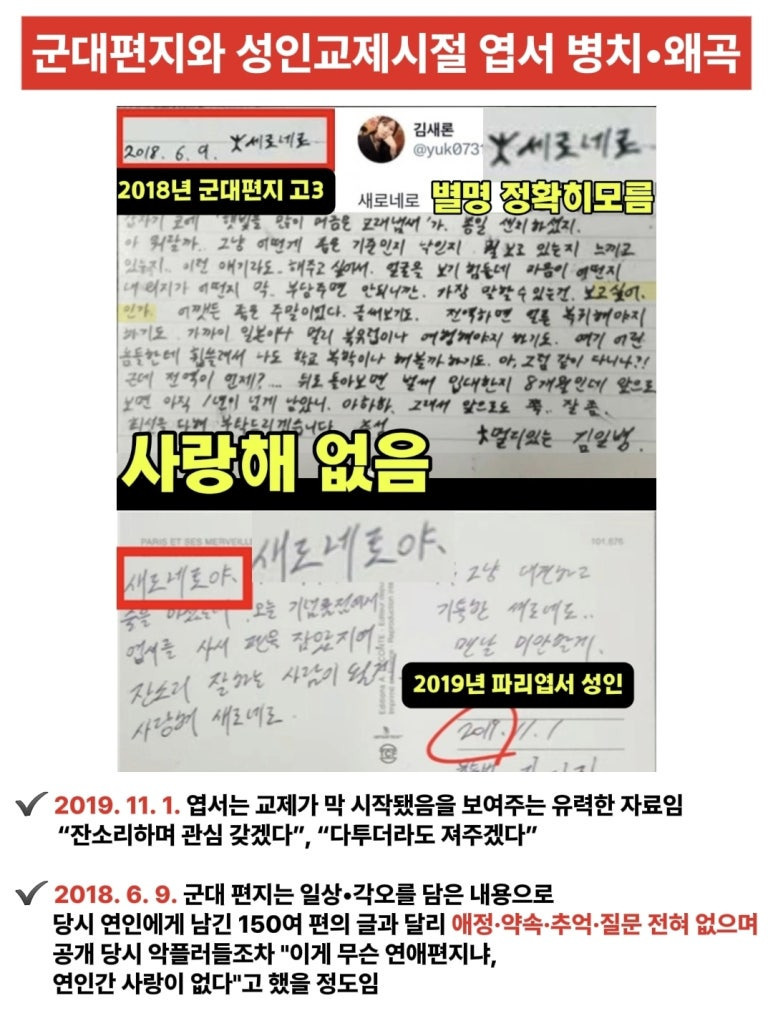 군대편지와 성인교제시절 엽서 병치•왜곡
2018. 6. 9. 세로네로
김새론
@yuk0731
세로네로
2018년 군대편지 고3
새로네로 별명 정확히모름
갑자기 코에 '햇빛을 많이 머금은 모래냄새'가. 종일 센치하셨지.
아 뭐랄까. 그냥 어떤게 좋은 기준인지 낙인지 뭘 보고 있는지 느끼고
있는지.. 이런 얘기라도 해주고 싶어서. 얼굴을 보기 힘든데 마음이 어떤지
내 의지가 어떤지 막. 부담주면 안되니깐. 가장 말할 수 있는건. 보고싶어.
인가. 어찟든 좋은 주말이었다. 글써보기도. 전역하면 얼른 복귀해야지
하기도. 가까이 일본이나 멀리 북유럽이나 여행해야지 하기도. 여기 어린
놈들한테 휩쓸려서 나도 학교 복학이나 해볼까 하기도. 아, 그럼 같이 다니나?!
근데 전역이 언제?.... 뒤로 돌아보면 벌써 입대한지 8개월인데 앞으로
보면 아직 1년이 넘게 남았니. 아하하. 그래서 앞으로도 쭉. 잘 좀.
최선을 다해 부탁드리겠습니다. 충성
멀리있는 김일병.
사랑해 없음
PARIS ET SES MERVEILL
101.676
새로네로야.
새로네로야.
오늘 기념품점에서
엽서를 사서 펜을 잡았지여.
잔소리 잘하는 사람이 될게
사랑해 새로네로.
그냥 대견하고
기특한 새로네로..
맨날 미안할게.
2019년 파리엽서 성인
2019. 11. 1
2019. 11. 1. 엽서는 교제가 막 시작됐음을 보여주는 유력한 자료임
“잔소리하며 관심 갖겠다”, “다투더라도 져주겠다”
2018. 6. 9. 군대 편지는 일상•각오를 담은 내용으로
당시 연인에게 남긴 150여 편의 글과 달리 애정·약속·추억·질문 전혀 없으며
공개 당시 악플러들조차 "이게 무슨 연애편지냐,
연인간 사랑이 없다"고 했을 정도임